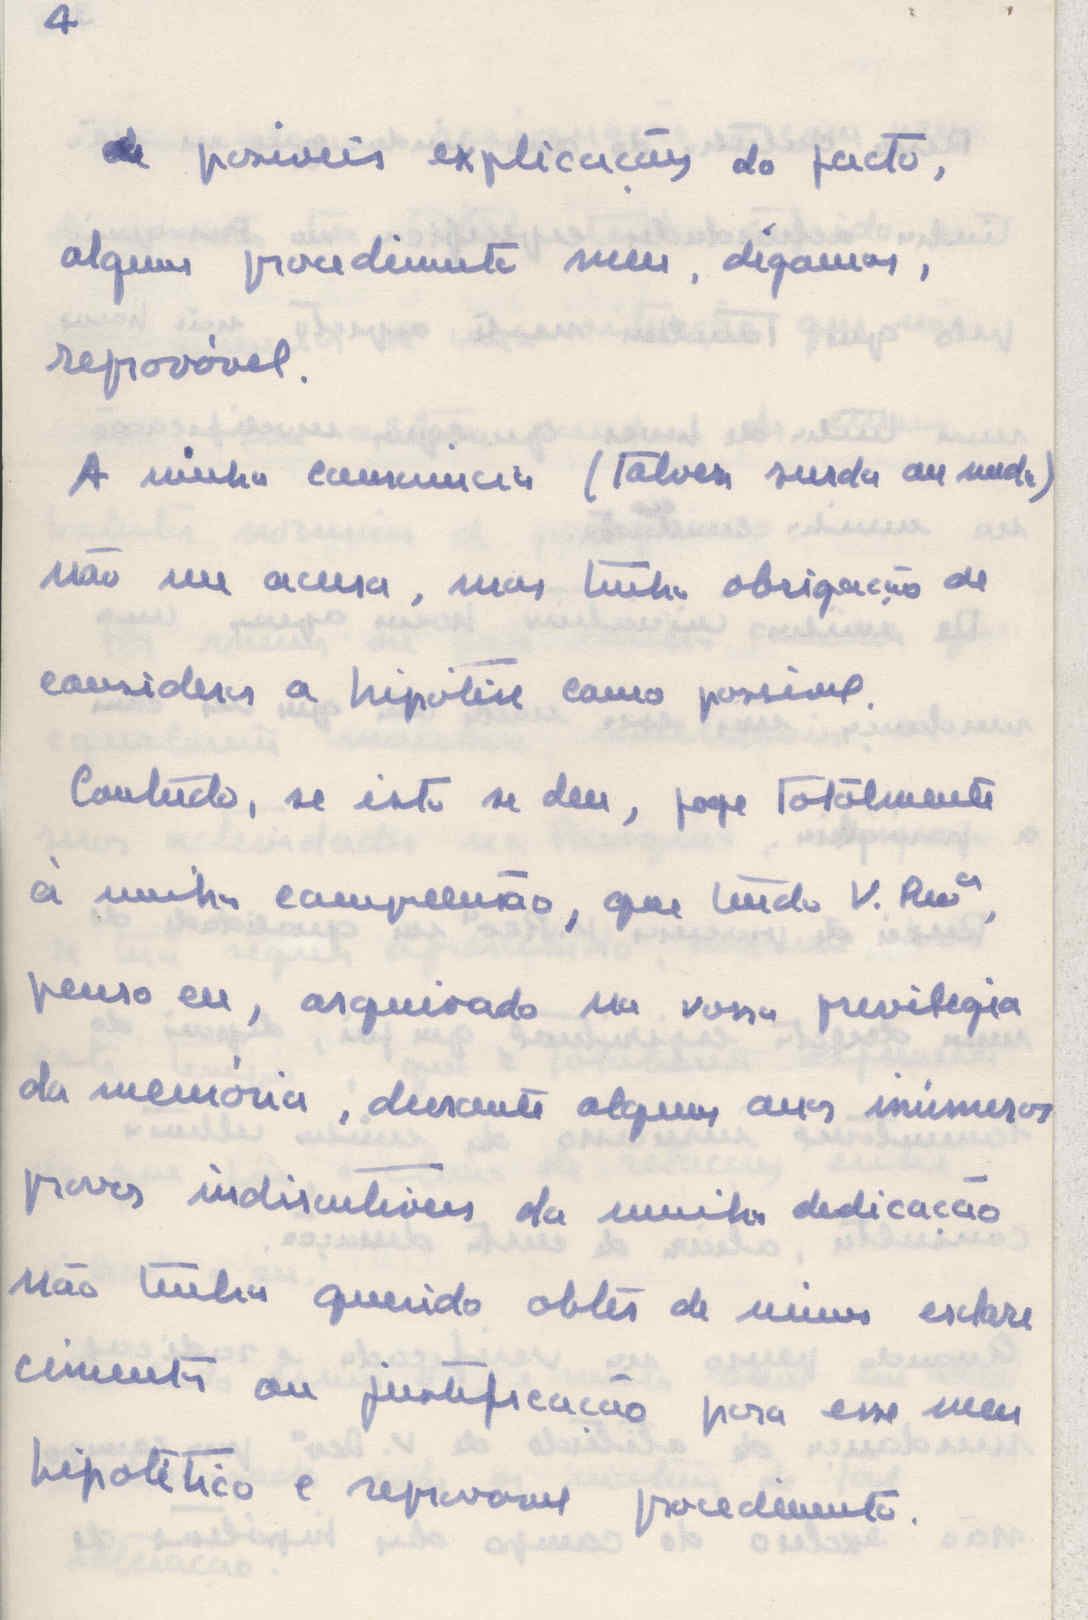 4
de possiveis explicações do facto,
algum procedimento meu, digamos,
reprovável.
A minha consciencia (talvez surda ou muda)
não me acusa, mas tinha obrigação de
considerar a hipótese como possivel.
Contudo, se isto se deu, foge totalmente
à minha compreensão, que tendo V. Revª,
penso eu, arquivado na vossa previlegia
da memória, durante alguns anos inúmeras
provas indiscutiveis da minha dedicação
não tenha querido obter de mim esclare
cimento ou justificação para esse meu
hipotético e reprovavel procedimento.